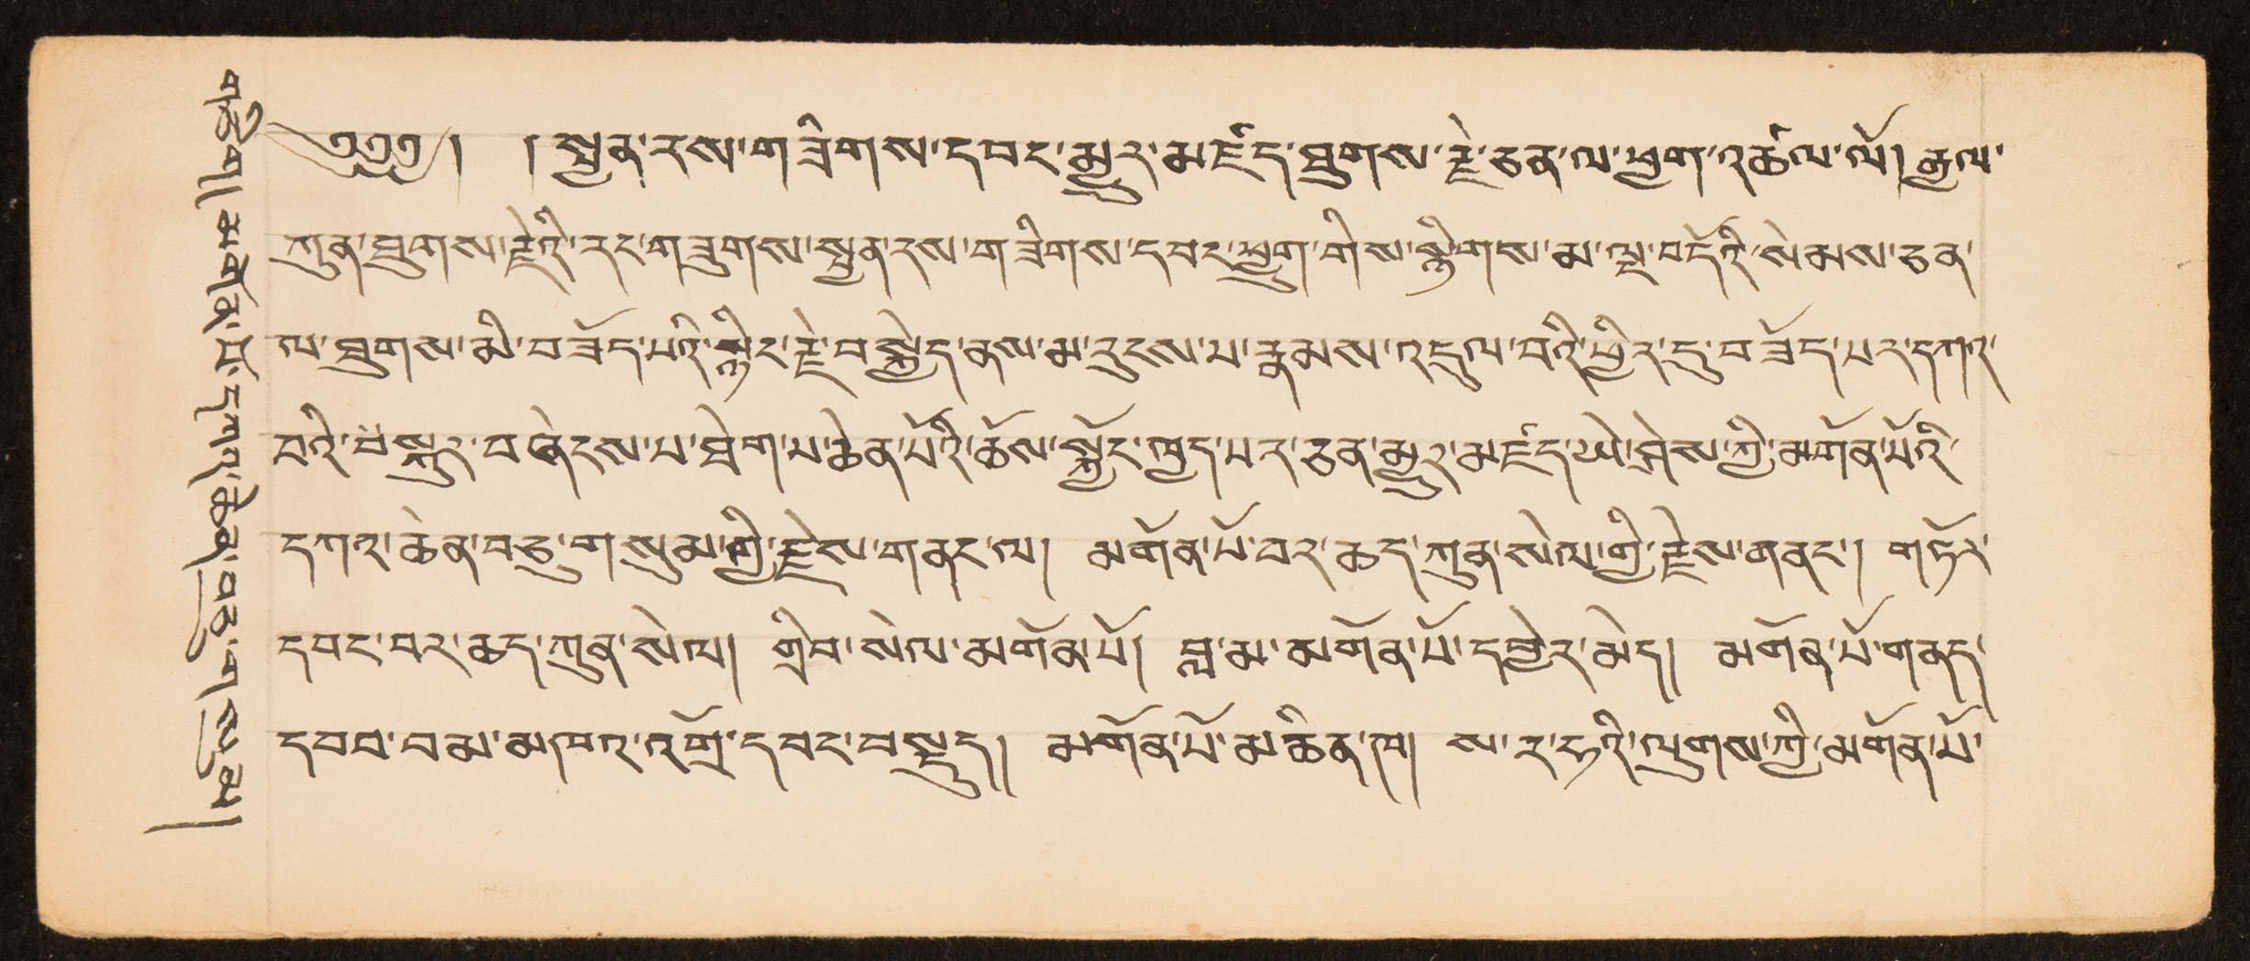 ༄༅༅། །སྤྱན་རས་གཟིགས་དབང་མྱུར་མཛད་ཐུགས་རྗེ་ཅན་ལ་ཕྱག་འཚལ་ལོ། རྒྱལ་
ཀུན་ཐུགས་རྗེའི་རང་གཟུགས་སྤྱན་རས་གཟིགས་དབང་ཕྱུག་གིས་སྙིགས་མ་ལྔ་བདོའི་སེམས་ཅན་
ལ་ཐུགས་མི་བཟོད་པའི་སྙིང་རྗེ་བསྐྱེད་ནས་མ་རུངས་པ་རྣམས་འདུལ་བའི་ཕྱིར་དུ་བཟོད་པར་དཀའ་
བའི་སྐུར་བཞེངས་པ་ཐེག་པ་ཆེན་པོའི་ཆོས་སྐྱོང་ཁྱད་པར་ཅན་མྱུར་མཛད་ཡེ་ཤེས་ཀྱི་མགོན་པོའི་
དཀའ་ཆེན་བཅུ་གསུམ་གྱི་རྗེས་གནང་ལ། མགོན་པོ་བར་ཆད་ཀུན་སེལ་གྱི་རྗེས་གནང་། གཏོར་
དབང་བར་ཆད་ཀུན་སེལ། གྲིབ་སེལ་མགོན་པོ། བླ་མ་མགོན་པོ་དབྱེར་མེད། མགོན་པོ་གནད་
དབབ་བམ་མཁའ་འགྲོ་དབང་བསྡུད། མགོན་པོ་མཆིན་ཁ། ས་ར་ཧའི་ལུགས་ཀྱི་མགོན་པོ་